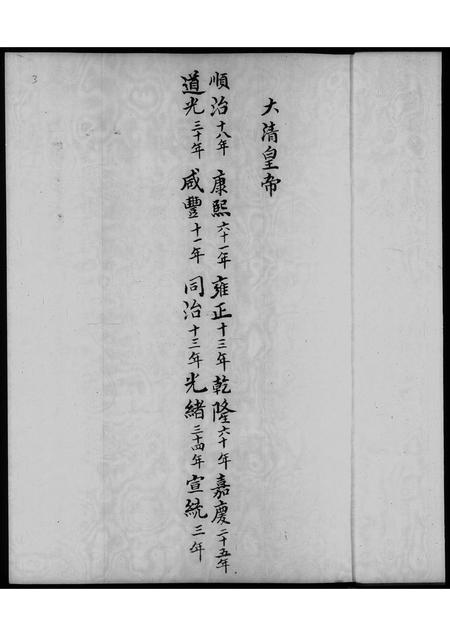 大清皇帝
順治十八年 康熙六十一年 雍正十三年 乾隆六十年 嘉慶二十五年
道光三十年 咸豐十一年 同治十三年 光緒三十四年 宣統三年
3